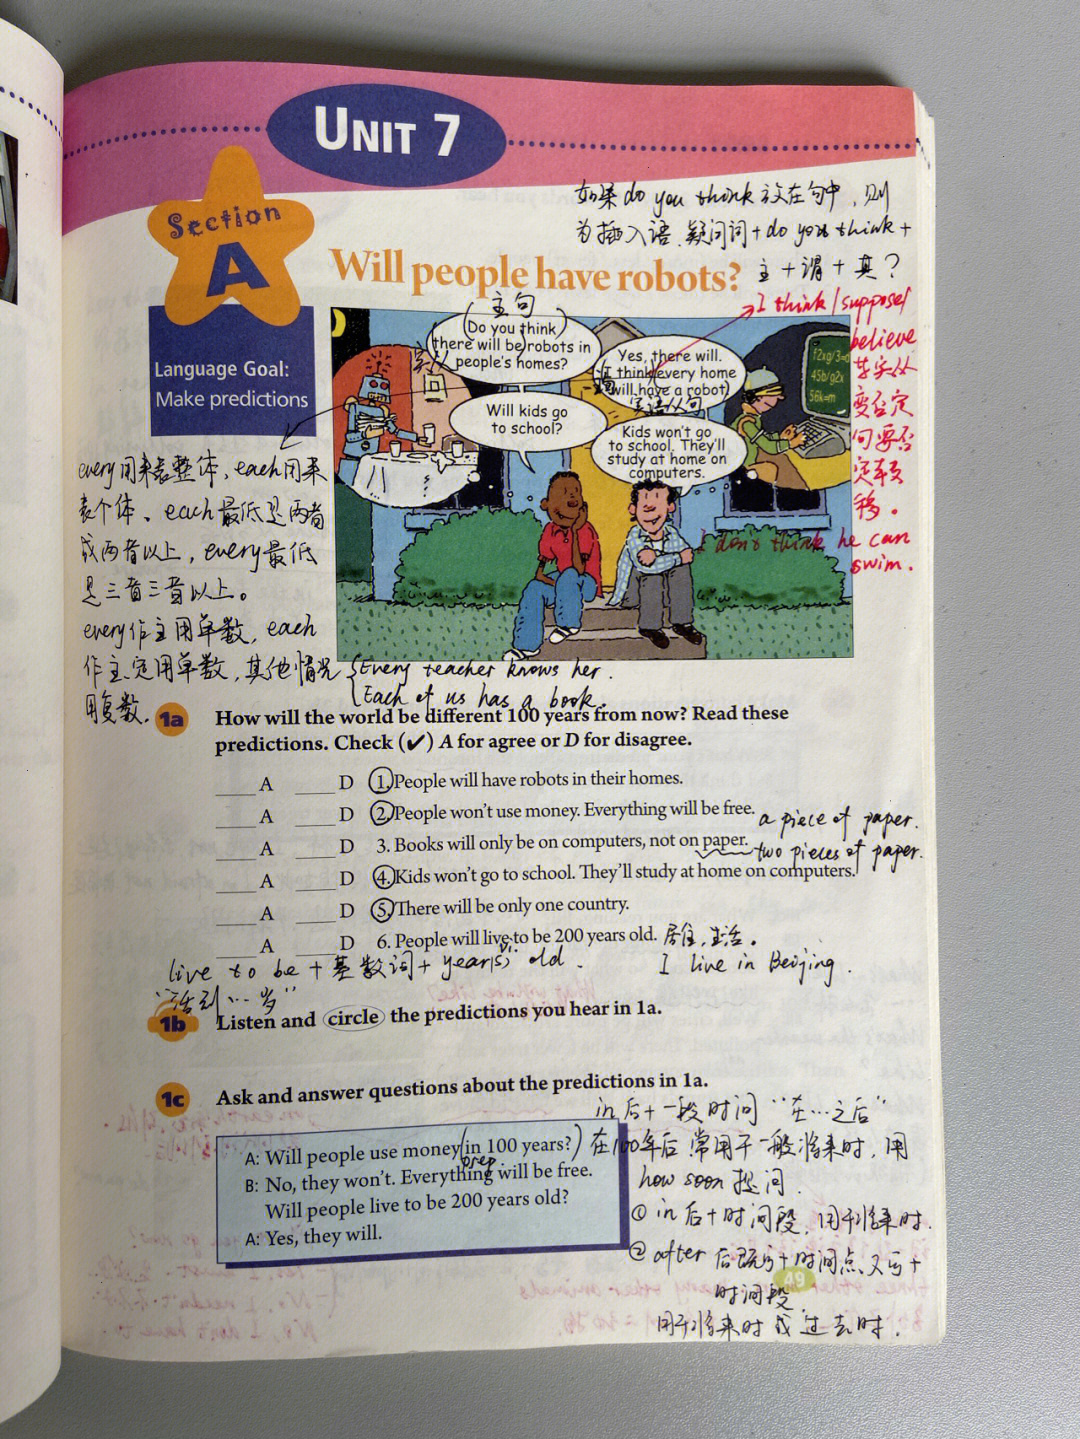 UNIT 7
Section
A
如果do you think 放在句中,则
为插入语.疑问词+do you think+
主+谓+其?
Will people have robots?
Language Goal:
Make predictions
(主句
Do you think)
there will be robots in
people's homes?
Yes, there will.
I think every home
will have a robot)
宾语从句
Will kids go
to school?
Kids won't go
to school. They'll
study at home on
computers.
f2xg/3=
45b/g2x
56k=m
I think/suppose/
believe
其宾从
变否定
句要否
定转
移。
I don't think he can
swim.
every用来表整体,each用来
表个体、each最低是两者
或两者以上,every最低
是三者三者以上。
every作主用单数,each
作主、定用单数,其他情况
用复数.
Every teacher knows her.
Each of us has a book.
1a How will the world be different 100 years from now? Read these
predictions. Check (✔) A for agree or D for disagree.
____ A ____ D 1. People will have robots in their homes.
____ A ____ D 2. People won't use money. Everything will be free.
a piece of paper.
____ A ____ D 3. Books will only be on computers, not on paper.
two pieces of paper.
____ A ____ D 4. Kids won't go to school. They'll study at home on computers.
____ A ____ D 5. There will be only one country.
____ A ____ D 6. People will live to be 200 years old. 居住,生活。
live to be + 基数词+ year(s) old.
vi.
I live in Beijing.
"活到…岁"
1b Listen and circle the predictions you hear in 1a.
1c Ask and answer questions about the predictions in 1a.
in后+一段时间 "在…之后"
A: Will people use money (in 100 years?) 在100年后.常用于一般将来时,用
prep.
B: No, they won't. Everything will be free.
how soon 提问.
Will people live to be 200 years old?
A: Yes, they will.
① in后+时间段,用于将来时.
② after 后既可+时间点、又可+
时间段
用于将来时或过去时.
49